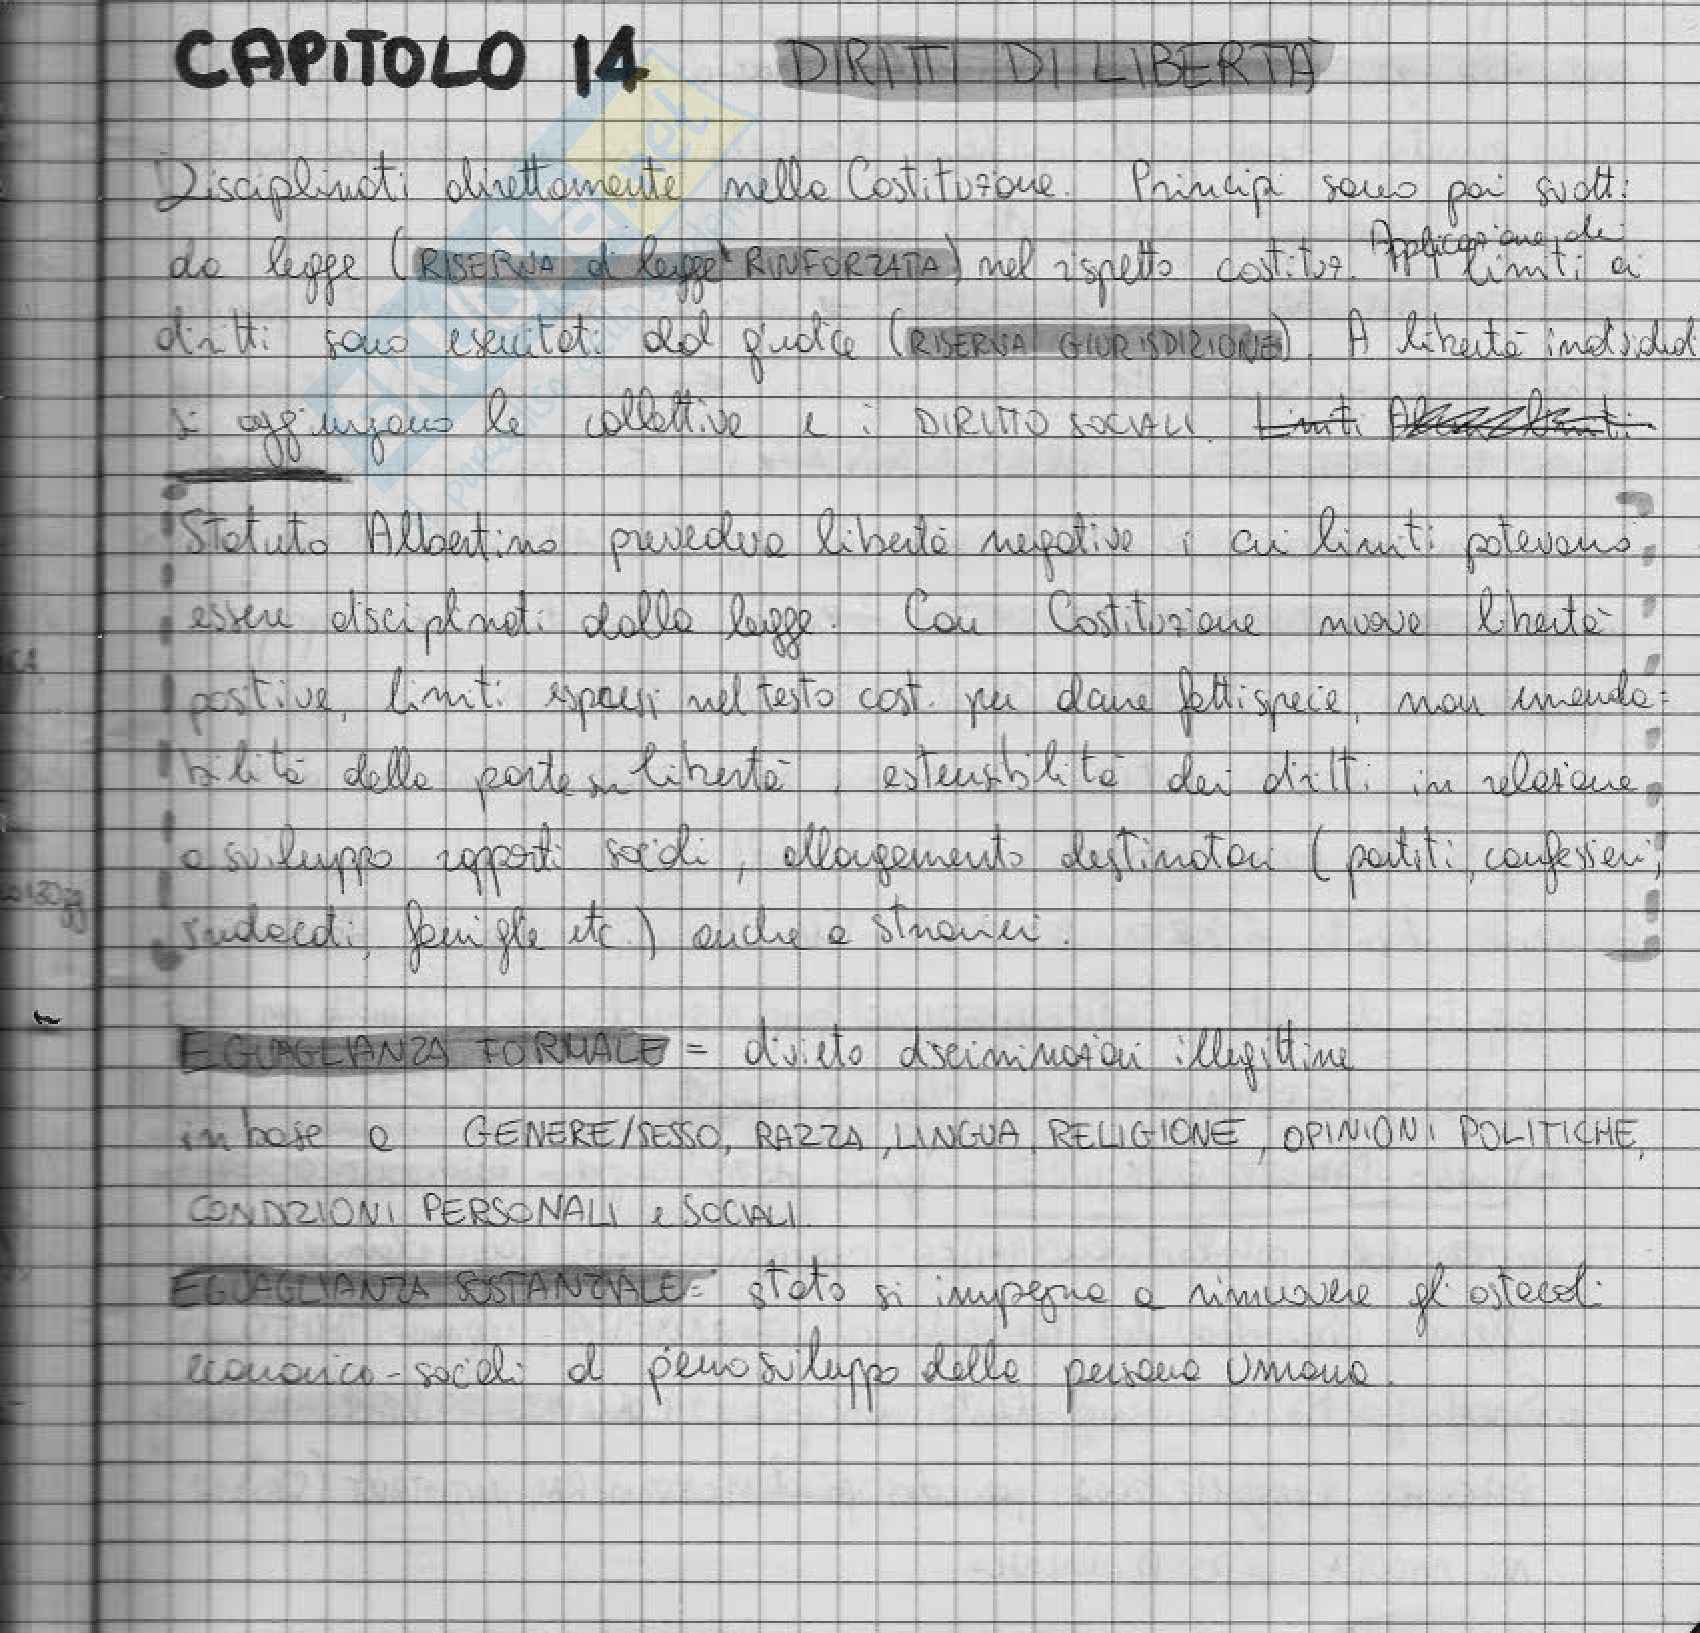 CAPITOLO 14 DIRITTI DI LIBERTÀ
Disciplinati direttamente nella Costituzione. Principi sono poi svolti
da legge (RISERVA di legge RINFORZATA) nel rispetto costituz. Applicazione dei limiti ai
diritti sono esercitati dal giudice (RISERVA GIURISDIZIONE). A libertà individuali
si aggiungono le collettive e i DIRITTO SOCIALI. Limiti
Statuto Albertino prevedeva libertà negative i cui limiti potevano
essere disciplinati dalla legge. Con Costituzione nuove libertà
positive, limiti espressi nel testo cost. per dare fattispecie, non emenda=
bilità della parte su libertà, estensibilità dei diritti in relazione
a sviluppo rapporti sociali, allargamento destinatari (partiti, confessioni,
sindacati, famiglie etc.) anche a stranieri.
EGUAGLIANZA FORMALE = divieto discriminazioni illegittime
in base a GENERE/SESSO, RAZZA, LINGUA, RELIGIONE, OPINIONI POLITICHE,
CONDIZIONI PERSONALI e SOCIALI.
EGUAGLIANZA SOSTANZIALE = stato si impegna a rimuovere gli ostacoli
economico-sociali al pieno sviluppo della persona umana.